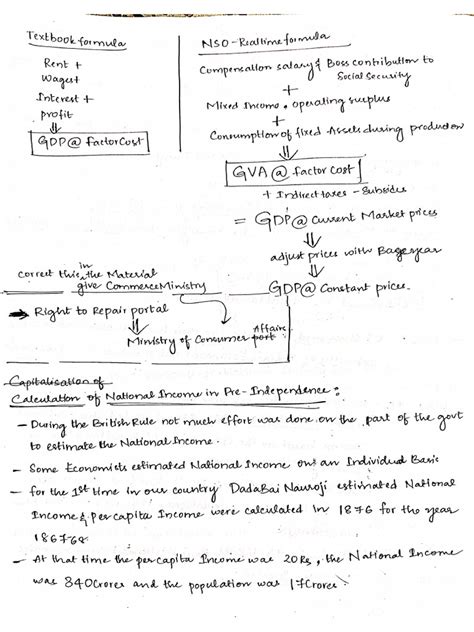 Textbook formula
Rent +
Wages+
Interest +
Profit
GDP@ factorCost
NSO - Realtime formula
Compensation salary & Boss contribution to
Social Security
+
Mixed Income. operating surplus
+
Consumption of fixed Assets during production
GVA @ factor Cost
+ Indirect taxes - Subsides
= GDP@ Current Market prices
adjust prices with Baseyear
GDP@ Constant prices.
correct this in the Material
give CommerceMinistry
→ Right to Repair portal
Ministry of Consumer port Affairs
Capitalisation of
Calculation of National Income in Pre-Independence :
- During the British Rule not much effort was done on the part of the govt
to estimate the National Income.
- Some Economists estimated National Income on an Individual Basis
- for the 1st time in our country DadaBai Nauroji estimated National
Income & per capita Income were calculated in 1876 for the year
186768
- At that time the per capita Income was 20Rs, the National Income
was 340crores and the population was 17crores